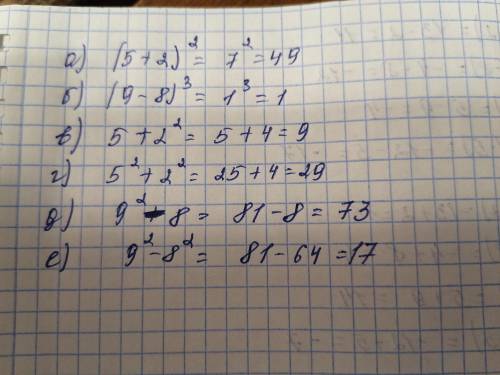 а) (5+2)² = 7² = 49
б) (9-8)³ = 1³ = 1
в) 5+2² = 5+4=9
г) 5²+2² = 25+4=29
д) 9²-8 = 81-8 = 73
е) 9²-8² = 81-64=17